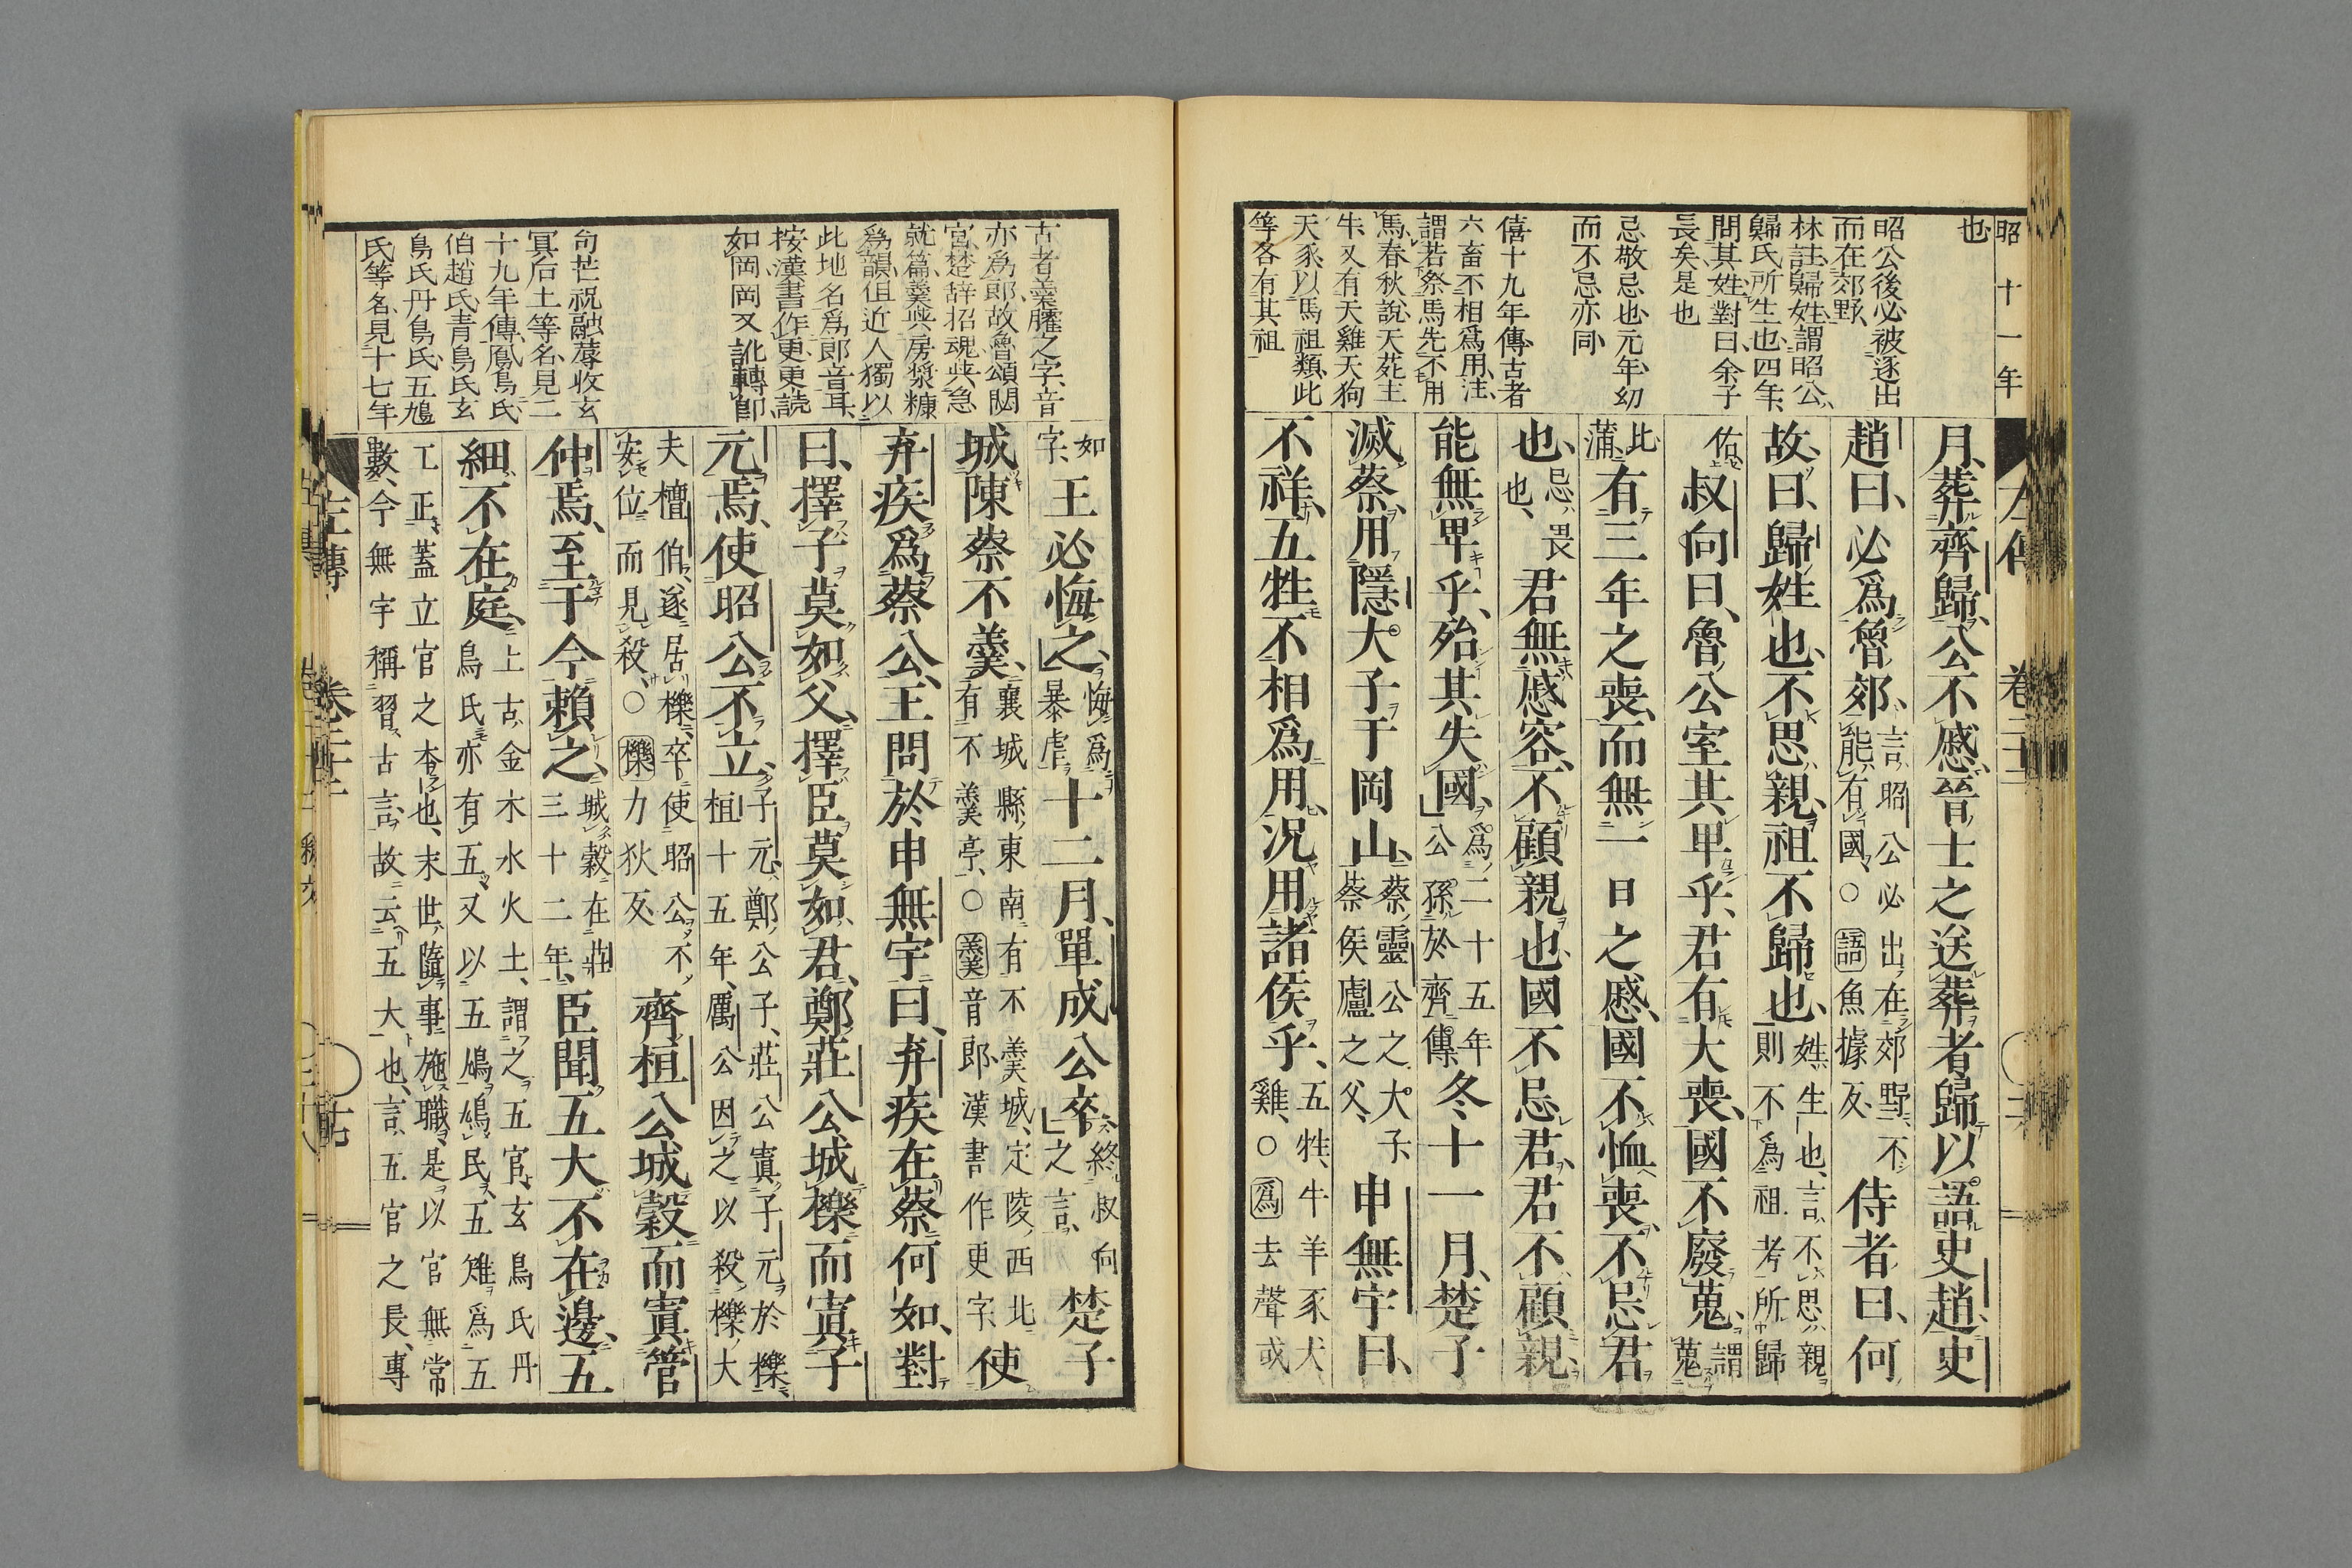 昭十一年
左傳
也
昭公後必被逐出
而在郊野
林註歸姓謂昭公
歸氏所生也四年
問其姓對曰余子
長矣是也
忌敬忌也元年幼
而不忌亦同
僖十九年傳古者
六畜不相爲用注
謂若祭馬先不用
馬春秋說天苑主
牛又有天雞天狗
天豕以馬祖類此
等各有其祖
月葬齊歸公不慼晉士之送葬者歸以語史趙史
趙曰必爲魯郊言昭公必出在郊野不能有國○語魚據反侍者曰何
故曰歸姓也不思親祖不歸也姓生也言不思親則不爲祖考所歸
佑叔向曰魯公室其卑乎君有大喪國不廢蒐謂蒐
比蒲有三年之喪而無一日之慼國不恤喪不忌君
也忌畏也君無慼容不顧親也國不忌君君不顧親
能無卑乎殆其失國爲二十五年公孫於齊傳冬十一月楚子
滅蔡用隱大子于岡山蔡靈公之大子蔡侯廬之父申無宇曰
不祥五牲不相爲用况用諸侯乎五牲牛羊豕犬雞○爲去聲或
古者羹臛之字音
亦爲郎故魯頌閟
宮楚辞招魂與急
就篇羹與房漿糠
爲韻但近人獨以
此地名爲郎音耳
按漢書作更更読
如岡岡又訛轉郎
句芒祝融蓐收玄
冥后土等名見二
十九年傳鳳鳥氏
伯趙氏青鳥氏玄
鳥氏丹鳥氏五鳩
氏等名見十七年
如字王必悔之悔爲暴虐十二月單成公卒終叔向之言楚子
城陳蔡不羹襄城縣東南有不羹城定陵西北有不羹亭○羹音郎漢書作更字使
弃疾爲蔡公王問於申無宇曰弃疾在蔡何如對
曰擇子莫如父擇臣莫如君鄭莊公城櫟而寘子
元焉使昭公不立子元鄭公子莊公寘子元於櫟桓十五年厲公因之以殺櫟大
夫檀伯遂居櫟卒使昭公不安位而見殺○櫟力狄反齊桓公城穀而寘管
仲焉至于今賴之城穀在莊三十二年臣聞五大不在邊五
細不在庭上古金木水火土謂之五官玄鳥氏丹鳥氏亦有五又以五鳩鳩民五雉爲五
工正蓋立官之本也末世隨事施職是以官無常數今無宇稱習古言故云五大也言五官之長專
左傳